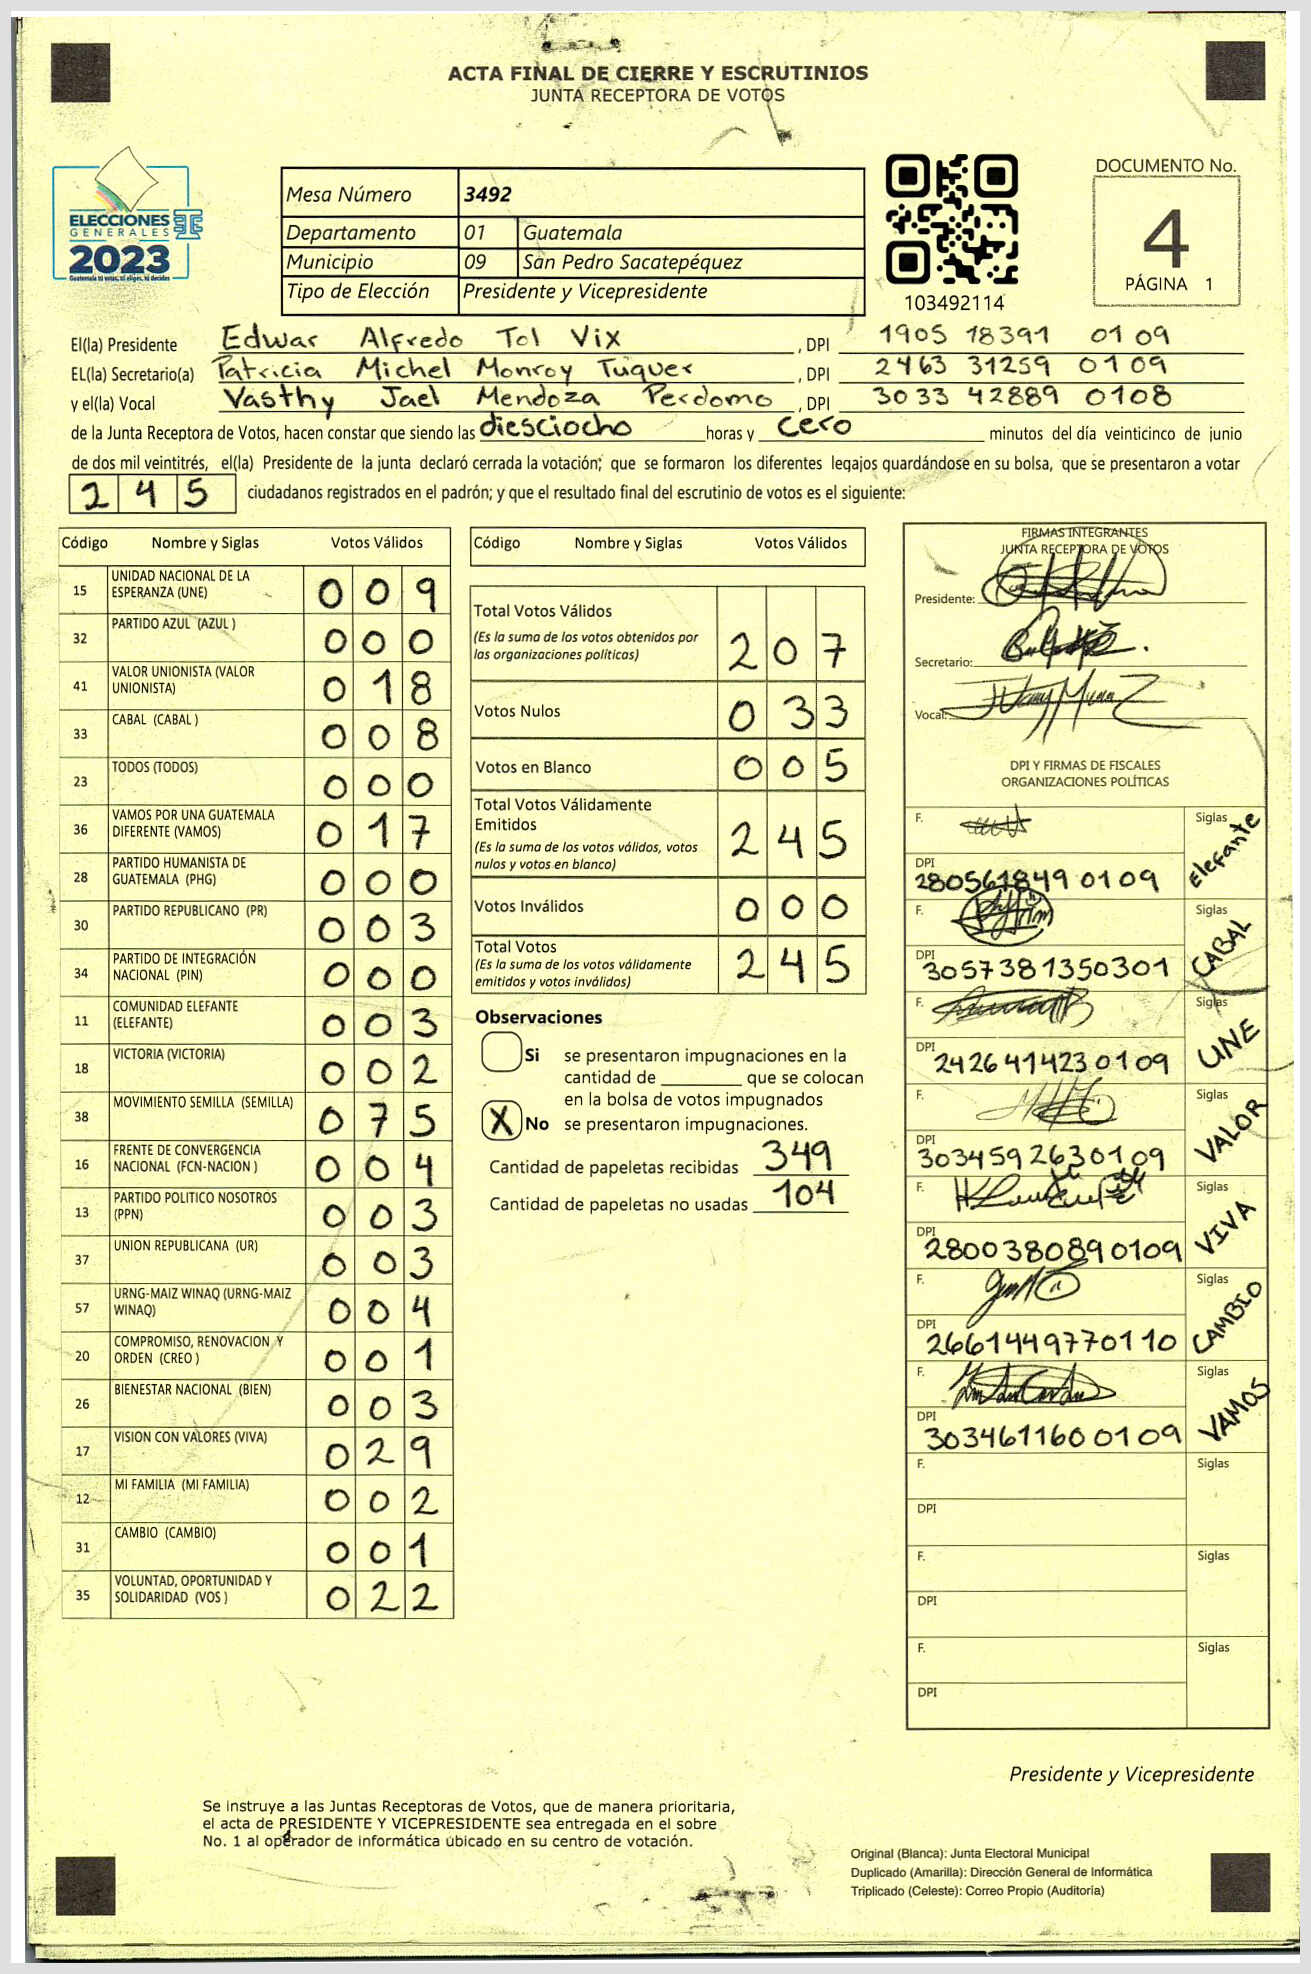 ACTA FINAL DE CIERRE Y ESCRUTINIOS
JUNTA RECEPTORA DE VOTOS
ELECCIONES
GENERALES
2023
Guatemala tú votas, tú eliges, tú decides
Mesa Número 3492
Departamento 01 Guatemala
Municipio 09 San Pedro Sacatepéquez
Tipo de Elección Presidente y Vicepresidente
103492114
DOCUMENTO No.
4
PÁGINA 1
El(la) Presidente Edwar Alfredo Tol Vix , DPI 1905 18391 01 09
EL(la) Secretario(a) Patricia Michel Monroy Tuquer , DPI 2463 31259 0109
y el(la) Vocal Vasthy Jael Mendoza Perdomo , DPI 3033 42889 0108
de la Junta Receptora de Votos, hacen constar que siendo las diesciocho horas y cero minutos del día veinticinco de junio
de dos mil veintitrés, el(la) Presidente de la junta declaró cerrada la votación; que se formaron los diferentes legajos guardándose en su bolsa, que se presentaron a votar
245 ciudadanos registrados en el padrón; y que el resultado final del escrutinio de votos es el siguiente:
Código Nombre y Siglas Votos Válidos
15 UNIDAD NACIONAL DE LA ESPERANZA (UNE) 009
32 PARTIDO AZUL (AZUL ) 000
41 VALOR UNIONISTA (VALOR UNIONISTA) 018
33 CABAL (CABAL ) 008
23 TODOS (TODOS) 000
36 VAMOS POR UNA GUATEMALA DIFERENTE (VAMOS) 017
28 PARTIDO HUMANISTA DE GUATEMALA (PHG) 000
30 PARTIDO REPUBLICANO (PR) 003
34 PARTIDO DE INTEGRACIÓN NACIONAL (PIN) 000
11 COMUNIDAD ELEFANTE (ELEFANTE) 003
18 VICTORIA (VICTORIA) 002
38 MOVIMIENTO SEMILLA (SEMILLA) 075
16 FRENTE DE CONVERGENCIA NACIONAL (FCN-NACION ) 004
13 PARTIDO POLITICO NOSOTROS (PPN) 003
37 UNION REPUBLICANA (UR) 003
57 URNG-MAIZ WINAQ (URNG-MAIZ WINAQ) 004
20 COMPROMISO, RENOVACION Y ORDEN (CREO ) 001
26 BIENESTAR NACIONAL (BIEN) 003
17 VISION CON VALORES (VIVA) 029
12 MI FAMILIA (MI FAMILIA) 002
31 CAMBIO (CAMBIO) 001
35 VOLUNTAD, OPORTUNIDAD Y SOLIDARIDAD (VOS ) 022
Código Nombre y Siglas Votos Válidos
Total Votos Válidos 207
(Es la suma de los votos obtenidos por
las organizaciones políticas)
Votos Nulos 033
Votos en Blanco 005
Total Votos Válidamente
Emitidos 245
(Es la suma de los votos válidos, votos
nulos y votos en blanco)
Votos Inválidos 000
Total Votos 245
(Es la suma de los votos válidamente
emitidos y votos inválidos)
Observaciones
Si se presentaron impugnaciones en la
cantidad de ________ que se colocan
en la bolsa de votos impugnados
X No se presentaron impugnaciones.
Cantidad de papeletas recibidas 349
Cantidad de papeletas no usadas 104
FIRMAS INTEGRANTES
JUNTA RECEPTORA DE VOTOS
Presidente:
Secretario:
Vocal:
DPI Y FIRMAS DE FISCALES
ORGANIZACIONES POLÍTICAS
F. Siglas Elefante
DPI 280561849 0109
F. Siglas CABAL
DPI 3057381350301
F. Siglas UNE
DPI 242641423 0109
F. Siglas VALOR
DPI 3034592630109
F. Siglas VIVA
DPI 2800380890109
F. Siglas CAMBIO
DPI 2661449770110
F. Siglas VAMOS
DPI 303461160 0109
F. Siglas
DPI
F. Siglas
DPI
F. Siglas
DPI
Presidente y Vicepresidente
Se instruye a las Juntas Receptoras de Votos, que de manera prioritaria,
el acta de PRESIDENTE Y VICEPRESIDENTE sea entregada en el sobre
No. 1 al operador de informática ubicado en su centro de votación.
Original (Blanca): Junta Electoral Municipal
Duplicado (Amarilla): Dirección General de Informática
Triplicado (Celeste): Correo Propio (Auditoría)